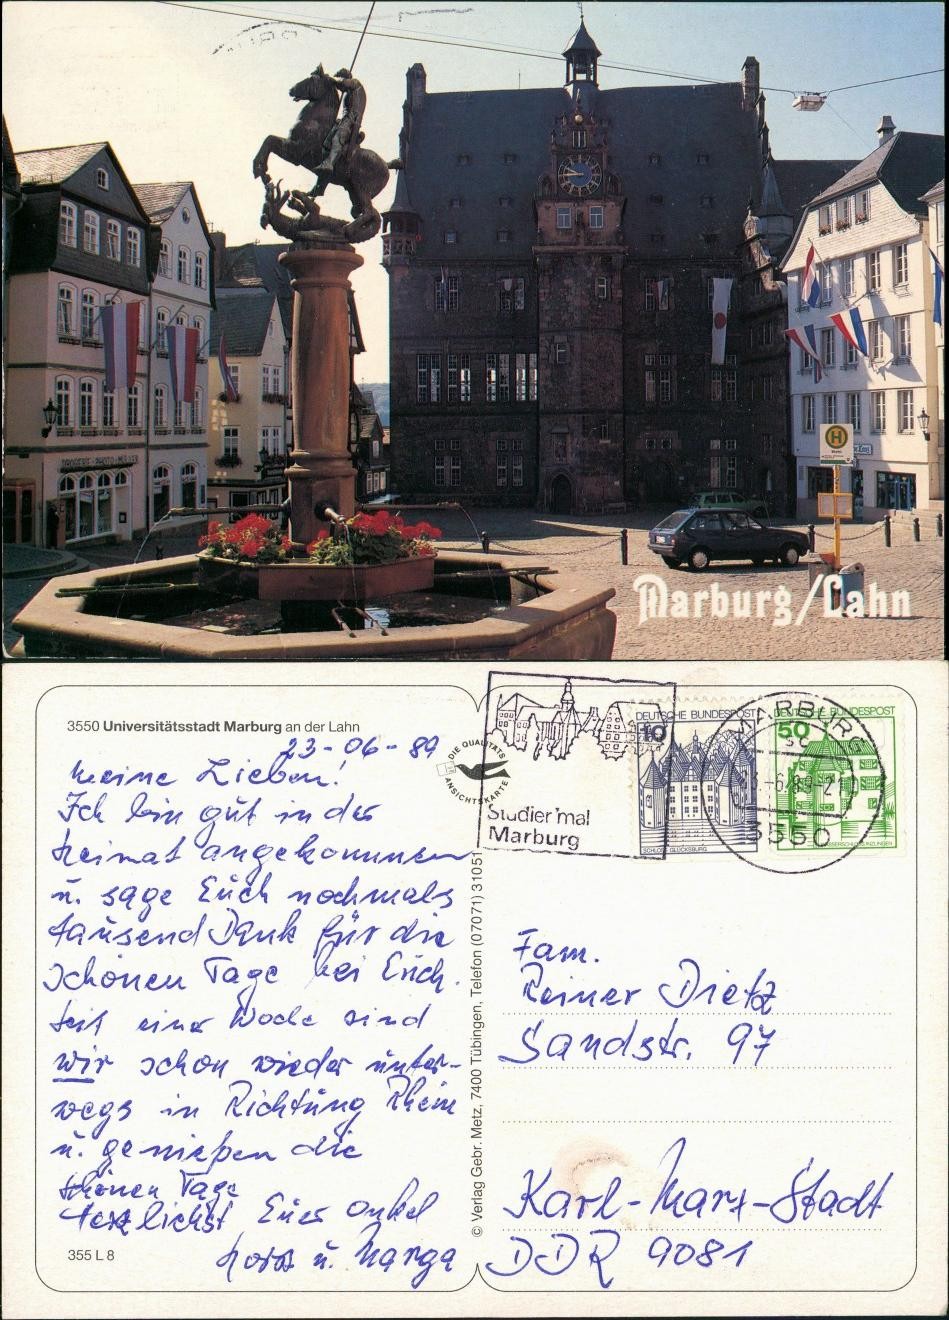 DROGERIE · PHOTO · MÖLLER
H
Marburg/Lahn
3550 Universitätsstadt Marburg an der Lahn
23-06-89
Meine Lieben!
Ich bin gut in der
Heimat angekommen
u. sage Euch nochmals
tausend Dank für die
schönen Tage bei Euch.
Seit einer Woche sind
wir schon wieder unter-
wegs in Richtung Rhein
u. genießen die
schönen Tage
Herzlichst Euer Onkel
Horst u. Marga
355 L 8
DIE QUALITÄTS
ANSICHTSKARTE
© Verlag Gebr. Metz, 7400 Tübingen, Telefon (07071) 31051
Studier'mal
Marburg
DEUTSCHE BUNDESPOST
10
SCHLOSS GLÜCKSBURG
DEUTSCHE BUNDESPOST
50
WASSERSCHLOSS INZLINGEN
MARBURG
3550
Fam.
Reiner Dietz
Sandstr. 97
Karl-Marx-Stadt
DDR 9081